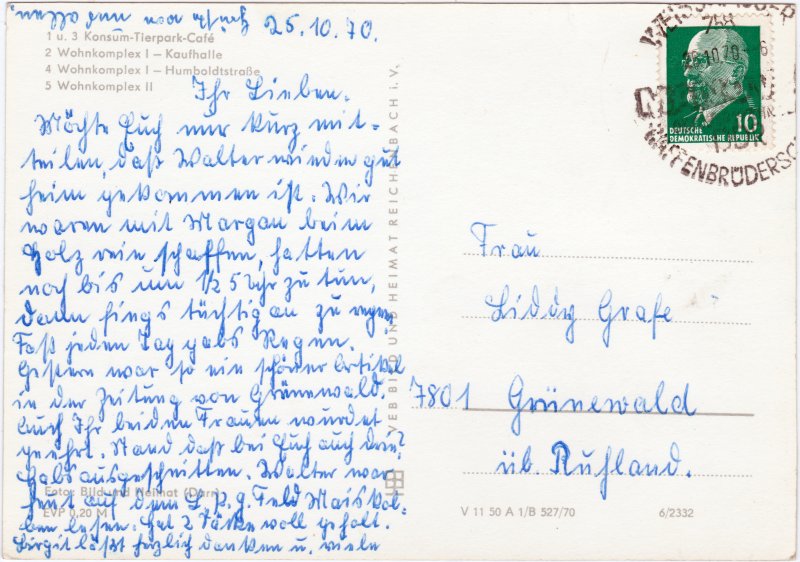 25.10.70.
1 u. 3 Konsum-Tierpark-Café
2 Wohnkomplex I – Kaufhalle
4 Wohnkomplex I – Humboldtstraße
5 Wohnkomplex II
Ihr Lieben.
Möchte Euch nur kurz mit-
teilen, daß Walter wieder gut
heim gekommen ist. Wir
waren mit Margan beim
Holz rein schaffen, hatten
noch bis um 1/2 5 Uhr zu tun,
dann fings tüchtig an zu regnen
Fast jeden Tag gabs Regen.
Gestern war so ein schöner Artikel
in der Zeitung von Grünewald.
Auch Ihr beiden Frauen wurdet
geehrt. Stand daß bei Euch auch drin?
Habs ausgeschnitten. Walter war
heut auf dem L.p.g. Feld Maiskol-
ben lesen. Hat 2 Säcke voll geholt.
Birgit läßt herzlich danken u. viele
Grüße von uns allen.
Foto: Bild und Heimat (Darr)
EVP 0,20 M
VEB BILD UND HEIMAT REICHENBACH i. V.
758
25.10.70
WAFFENBRÜDERSC
10
DEUTSCHE
DEMOKRATISCHE REPUBLIK
Frau
Liddy Grafe
7801 Grünewald
üb. Ruhland.
V 11 50 A 1/B 527/70 6/2332